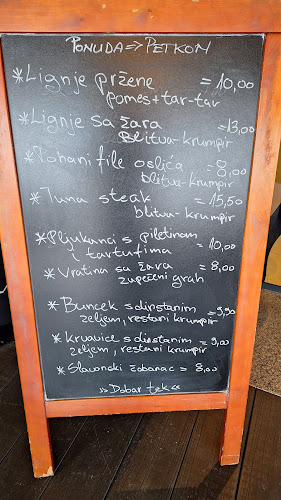 Ponuda => Petkom
*Lignje pržene = 10,00
pomes + tar-tar
*Lignje sa žara = 13,00
Blitva-krumpir
*Pohani file oslića = 8,00
blitva-krumpir
*Tuna steak = 15,50
blitva-krumpir
*Pljukanci s piletinom
i tartufima = 10,00
*Vratina sa žara = 8,00
zapečeni grah
*Buncek s dinstanim = 9,90
zeljem, restani krumpir
*krvavice s dinstanim = 9,00
zeljem, restani krumpir
*Slavonski čobanac = 8,00
»Dobar tek«